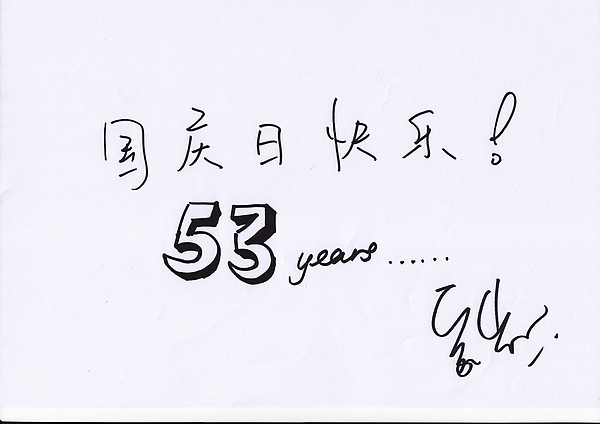 国庆日快乐!
53 years......